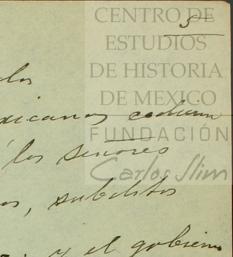 CENTRO DE
5
ESTUDIOS
DE HISTORIA
DE MEXICO
FUNDACIÓN
Carlos Slim
los
xicanos
los señores
os, subditos
y el gobierno